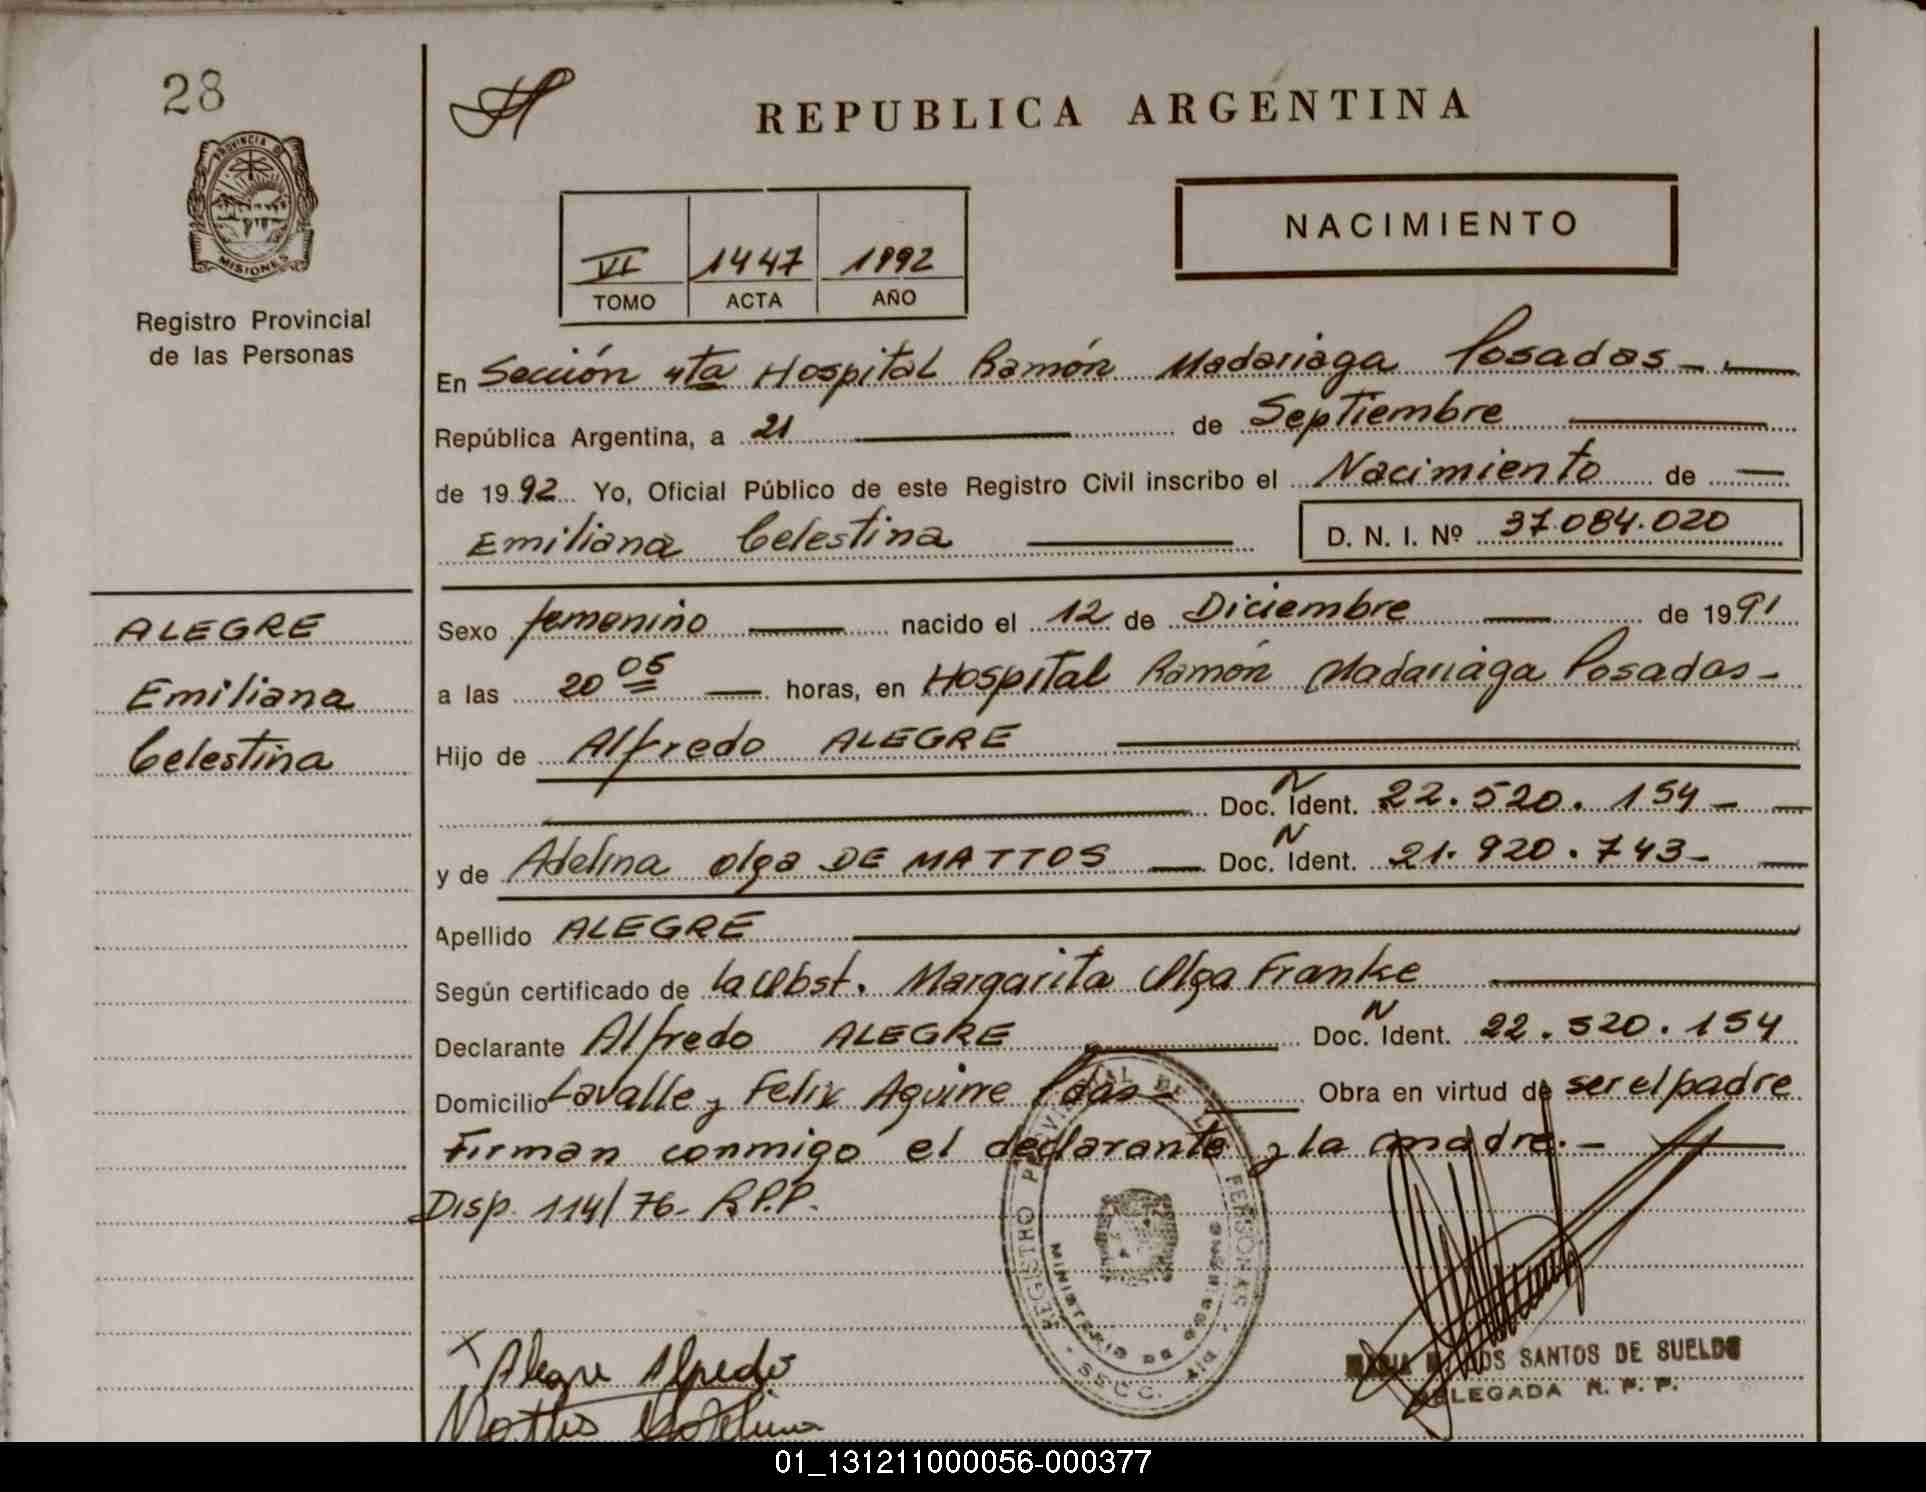 28
REPUBLICA ARGENTINA
PROVINCIA DE
MISIONES
Registro Provincial
de las Personas
NACIMIENTO
VI 1447 1992
TOMO ACTA AÑO
En Sección 4ta Hospital Ramón Madariaga Posadas -
República Argentina, a 21 de Septiembre
de 1992 Yo, Oficial Público de este Registro Civil inscribo el Nacimiento de
Emiliana Celestina D. N. I. Nº 37.084.020
ALEGRE
Emiliana
Celestina
Sexo femenino nacido el 12 de Diciembre de 1991
a las 20 05 horas, en Hospital Ramón Madariaga Posadas -
Hijo de Alfredo ALEGRE
Doc. N Ident. 22.520.154 -
y de Adelina Olga DE MATTOS Doc. N Ident. 21.920.743 -
Apellido ALEGRE
Según certificado de la Obst. Margarita Olga Franke
Declarante Alfredo ALEGRE Doc. N Ident. 22.520.154
Domicilio Lavalle y Felix Aguirre Pdas - Obra en virtud de ser el padre
Firman conmigo el declarante y la madre. -
Disp. 114/76 - R.P.P.
REGISTRO PROVINCIAL DE LAS PERSONAS
MINISTERIO DE GOBIERNO
SS.CC.
Alegre Alfredo
DOS SANTOS DE SUELDO
DELEGADA R. P. P.
01_131211000056-000377